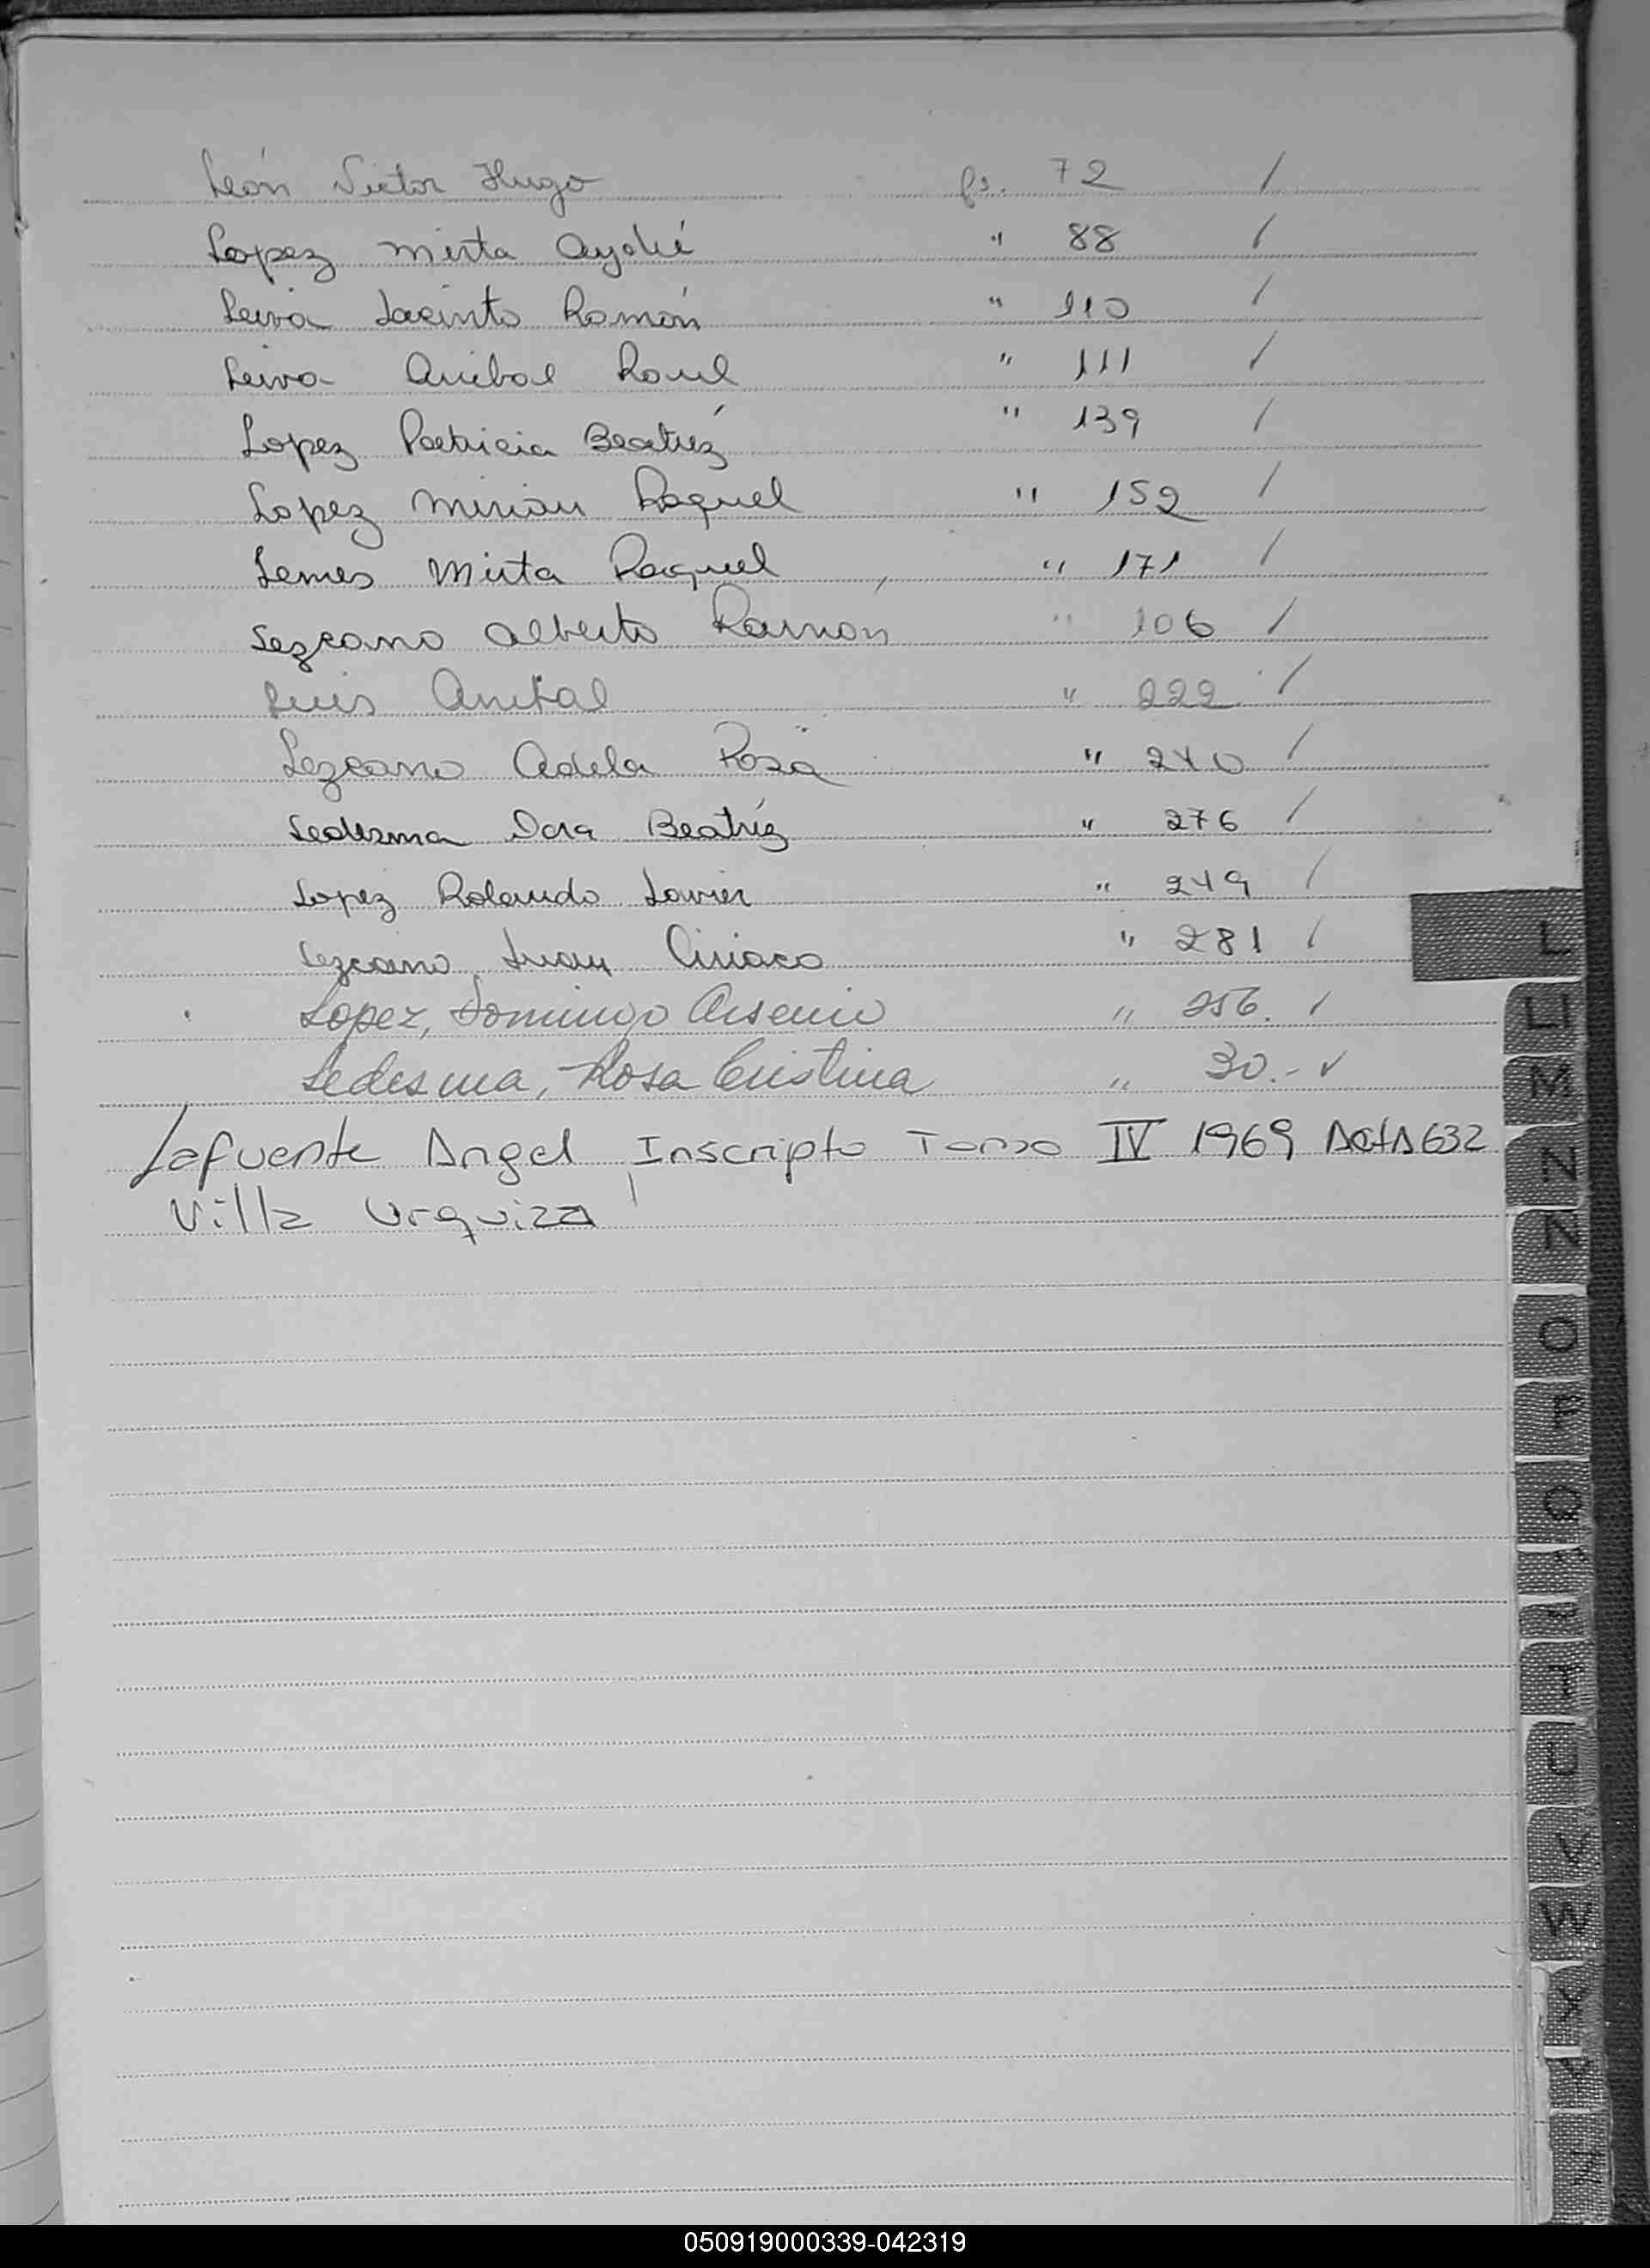 León Victor Hugo fs. 72 /
Lopez Mirta Aydée " 88 /
Leiva Jacinto Ramón " 110 /
Leiva Anibal Raul " 111 /
Lopez Patricia Beatríz " 139 /
Lopez Mirian Raquel " 152 /
Lemes Mirta Raquel " 171 /
Lezcano Alberto Ramón " 106 /
Luis Anibal " 222 /
Lezcano Adela Rosa " 240 /
Ledesma Dora Beatríz " 276 /
Lopez Rolando Javier " 249 /
Lezcano Juan Ciriaco " 281 /
Lopez, Domingo Arsenio " 256. /
Ledesma, Rosa Cristina " 30.- ✓
Lafuente Angel Inscripto Tomo IV 1969 Acta 632
Villa Urquiza
L
LL
M
N
Ñ
O
P
Q
T
U
V
W
X
050919000339-042319